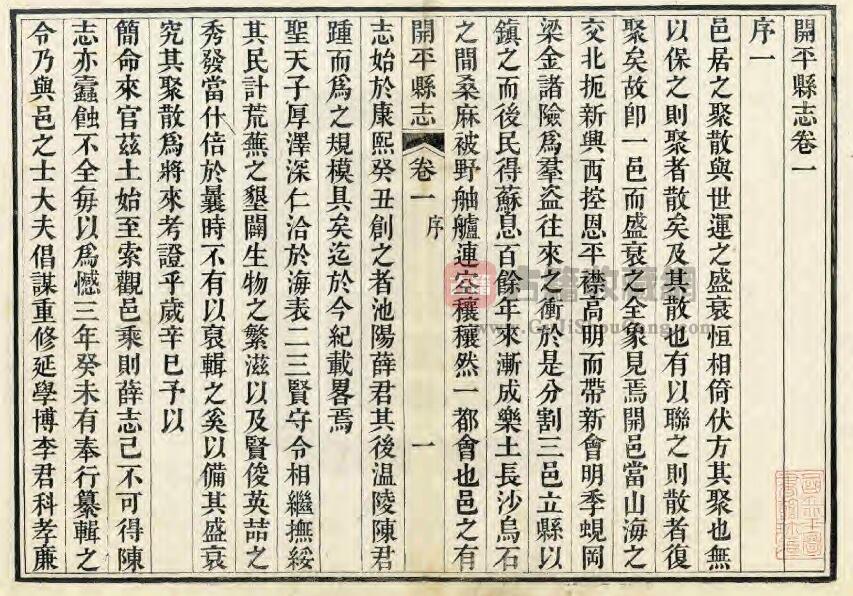 開平縣志卷一
序一
邑居之聚散與世運之盛衰恒相倚伏方其聚也無
以保之則聚者散矣及其散也有以聯之則散者復
聚矣故卽一邑而盛衰之全象見焉開邑當山海之
交北扼新興西控恩平襟高明而帶新會明季蜆岡
梁金諸險爲羣盜往來之衝於是分割三邑立縣以
鎮之而後民得蘇息百餘年來漸成樂土長沙烏石
之間桑麻被野舳艫連空穰穰然一都會也邑之有
開平縣志 卷一 序 一
志始於康熙癸丑創之者池陽薛君其後温陵陳君
踵而爲之規模具矣迄於今紀載畧焉
聖天子厚澤深仁洽於海表二三賢守令相繼撫綏
其民計荒蕪之墾闢生物之繁滋以及賢俊英喆之
秀發當什倍於曩時不有以裒輯之奚以備其盛衰
究其聚散爲將來考證乎歲辛巳予以
簡命來官茲土始至索觀邑乘則薛志已不可得陳
志亦蠧蝕不全每以爲憾三年癸未有奉行纂輯之
令乃與邑之士大夫倡謀重修延學博李君科孝廉
古籍收藏網
www.GuJiShouCang.com